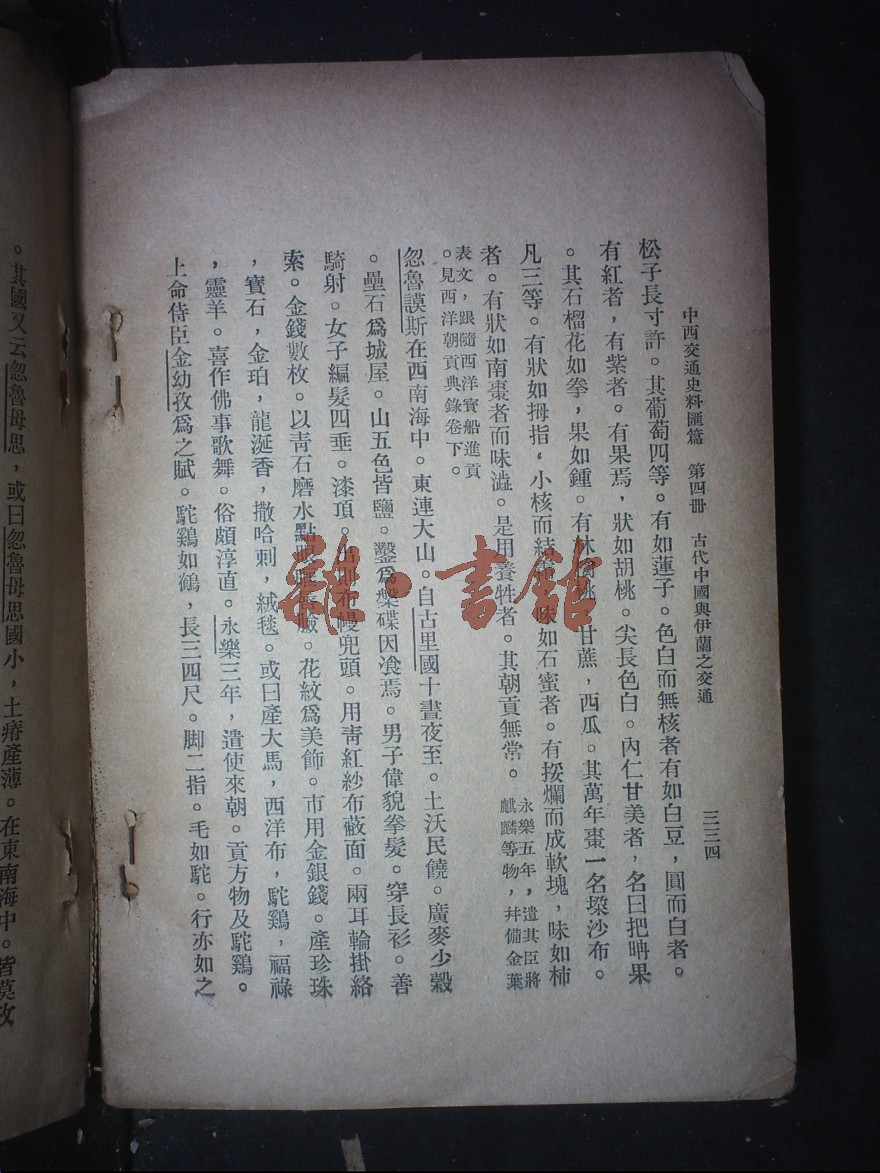 中西交通史料匯篇　第四冊　古代中國與伊蘭之交通　三三四
松子長寸許。其葡萄四等。有如蓮子。色白而無核者有如白豆，圓而白者。
有紅者，有紫者。有果焉，狀如胡桃。尖長色白。內仁甘美者，名曰把呥果
。其石榴花如拳，果如鍾。有林檎，桃，甘蔗，西瓜。其萬年棗一名垜沙布。
凡三等。有狀如拇指，小核而結霜，味如石蜜者。有挼爛而成軟塊，味如柿
者。有狀如南棗者而味澁。是用養牲者。其朝貢無常。永樂五年，遣其臣將
麒麟等物，并備金葉
表文，跟隨西洋寶船進貢
。見西洋朝貢典錄卷下。
忽魯謨斯在西南海中。東連大山。自古里國十晝夜至。土沃民饒。廣麥少穀
。壘石爲城屋。山五色皆鹽。鑿爲槃碟因飡焉。男子偉貌拳髮。穿長衫。善
騎射。女子編髮四垂。漆頂。出則布幔兜頭。用靑紅紗布蔽面。兩耳輪掛絡
索。金錢數枚。以靑石磨水點眼眶唇臉。花紋爲美飾。市用金銀錢。產珍珠
，寶石，金珀，龍涎香，撒哈剌，絨毯。或曰產大馬，西洋布，駝鷄，福祿
，靈羊。喜作佛事歌舞。俗頗淳直。永樂三年，遣使來朝。貢方物及駝鷄。
上命侍臣金幼孜爲之賦。駝鷄如鶴，長三四尺。脚二指。毛如駝。行亦如之
。其國又云忽魯母思，或曰忽魯母思國小，土瘠產薄。在東南海中。皆莫攷
雜·書館